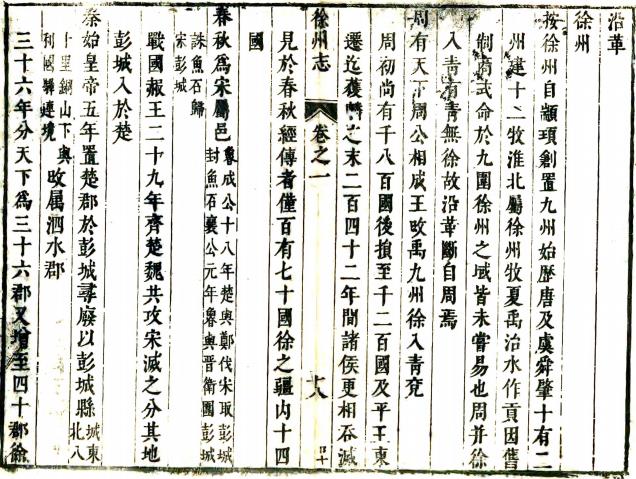 沿革
徐州
按徐州自顓頊創置九州始歷唐及虞舜肇十有二
州建十二牧淮北屬徐州牧夏禹治水作貢因舊
制商武命於九圍徐州之域皆未嘗易也周并徐
入青有青無徐故沿革斷自周焉
周有天下周公相成王攺禹九州徐入青兗
周初尚有千八百國後損至千二百國及平王東
遷迄獲麟之末二百四十二年間諸侯更相吞滅
徐州志 卷之一 十八
見於春秋經傳者僅百有七十國徐之疆内十四
國
春秋爲宋屬邑 魯成公十八年楚與鄭伐宋取彭城
封魚石襄公元年魯與晉衛圍彭城
誅魚石歸
宋彭城
戰國赧王二十九年齊楚魏共攻宋滅之分其地
彭城入於楚
秦始皇帝五年置楚郡於彭城尋廢以彭城縣 城東
北八
十里銅山下與
利國驛連境 攺属泗水郡
三十六年分天下爲三十六郡又增至四十郡徐